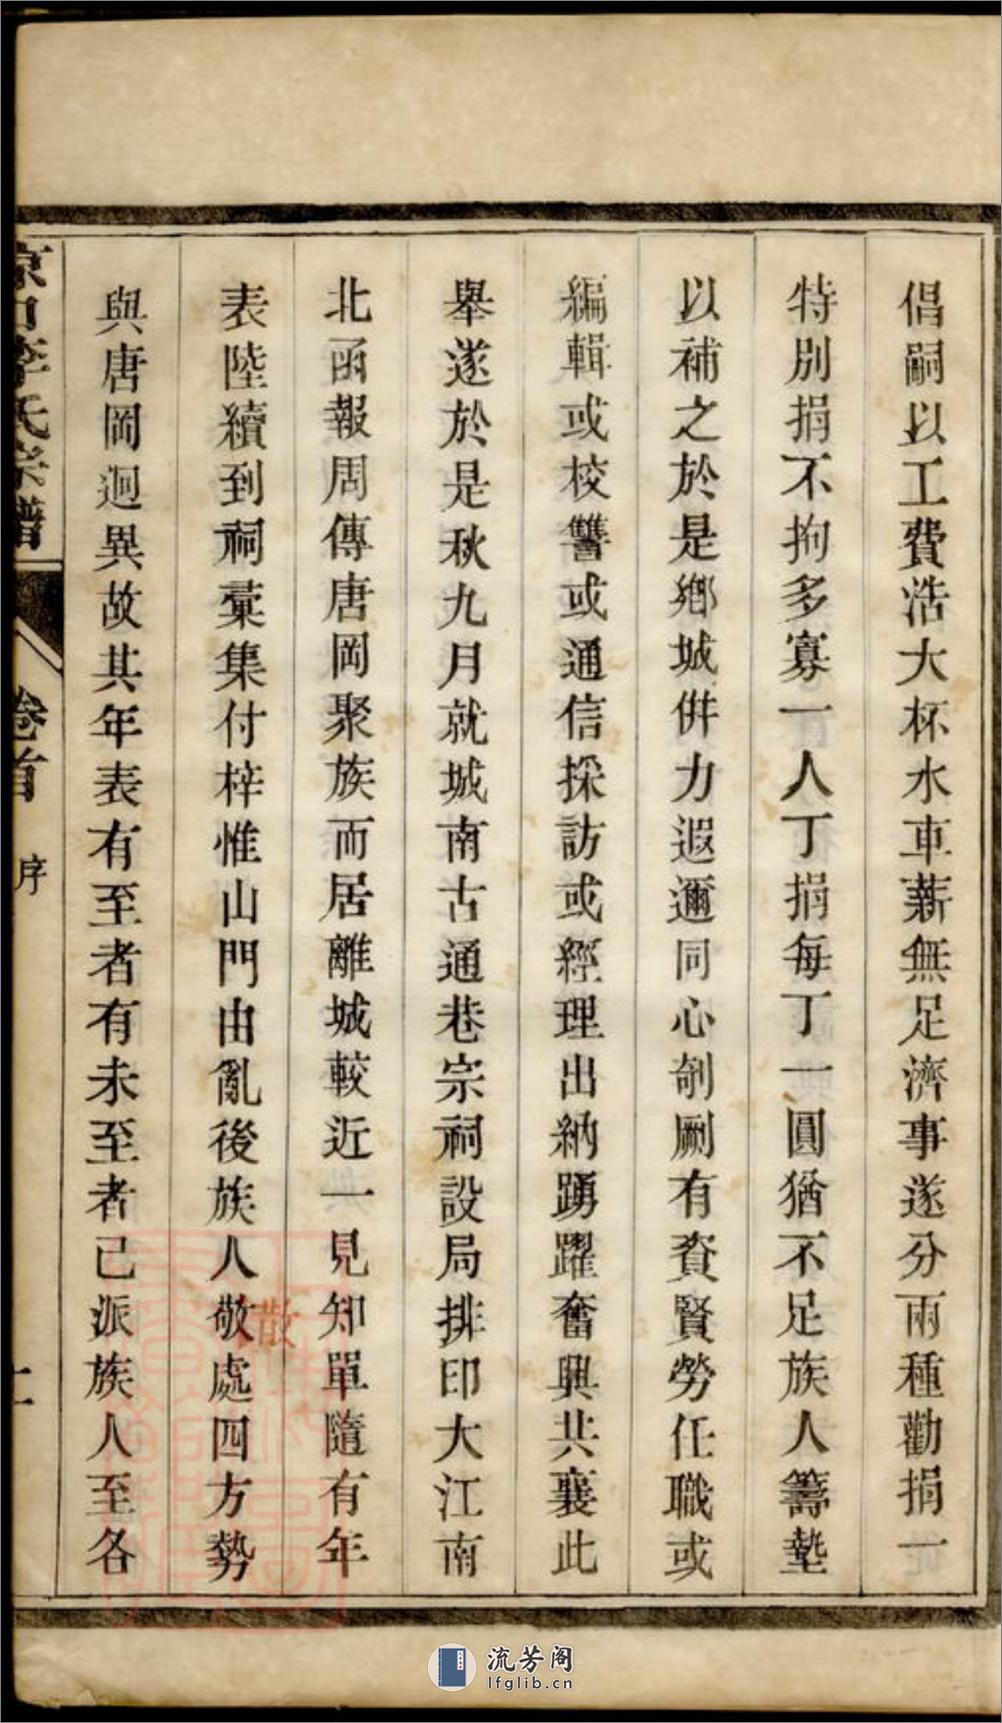 倡嗣以工費浩大杯水車薪無足濟事遂分兩種勸捐一
特別捐不拘多寡一人丁捐每丁一圓猶不足族人籌墊
以補之於是鄉城併力遐邇同心剞劂有資賢勞任職或
編輯或校讐或通信採訪或經理出納踴躍奮興共襄此
舉遂於是秋九月就城南古通巷宗祠設局排印大江南
北函報周傳唐岡聚族而居離城較近一見知單隨有年
表陸續到祠彙集付梓惟山門由亂後族人敬處四方勢
散
與唐岡迥異故其年表有至者有未至者已派族人至各
京口李氏宗譜
卷首
序
流芳阁
lfglib.cn